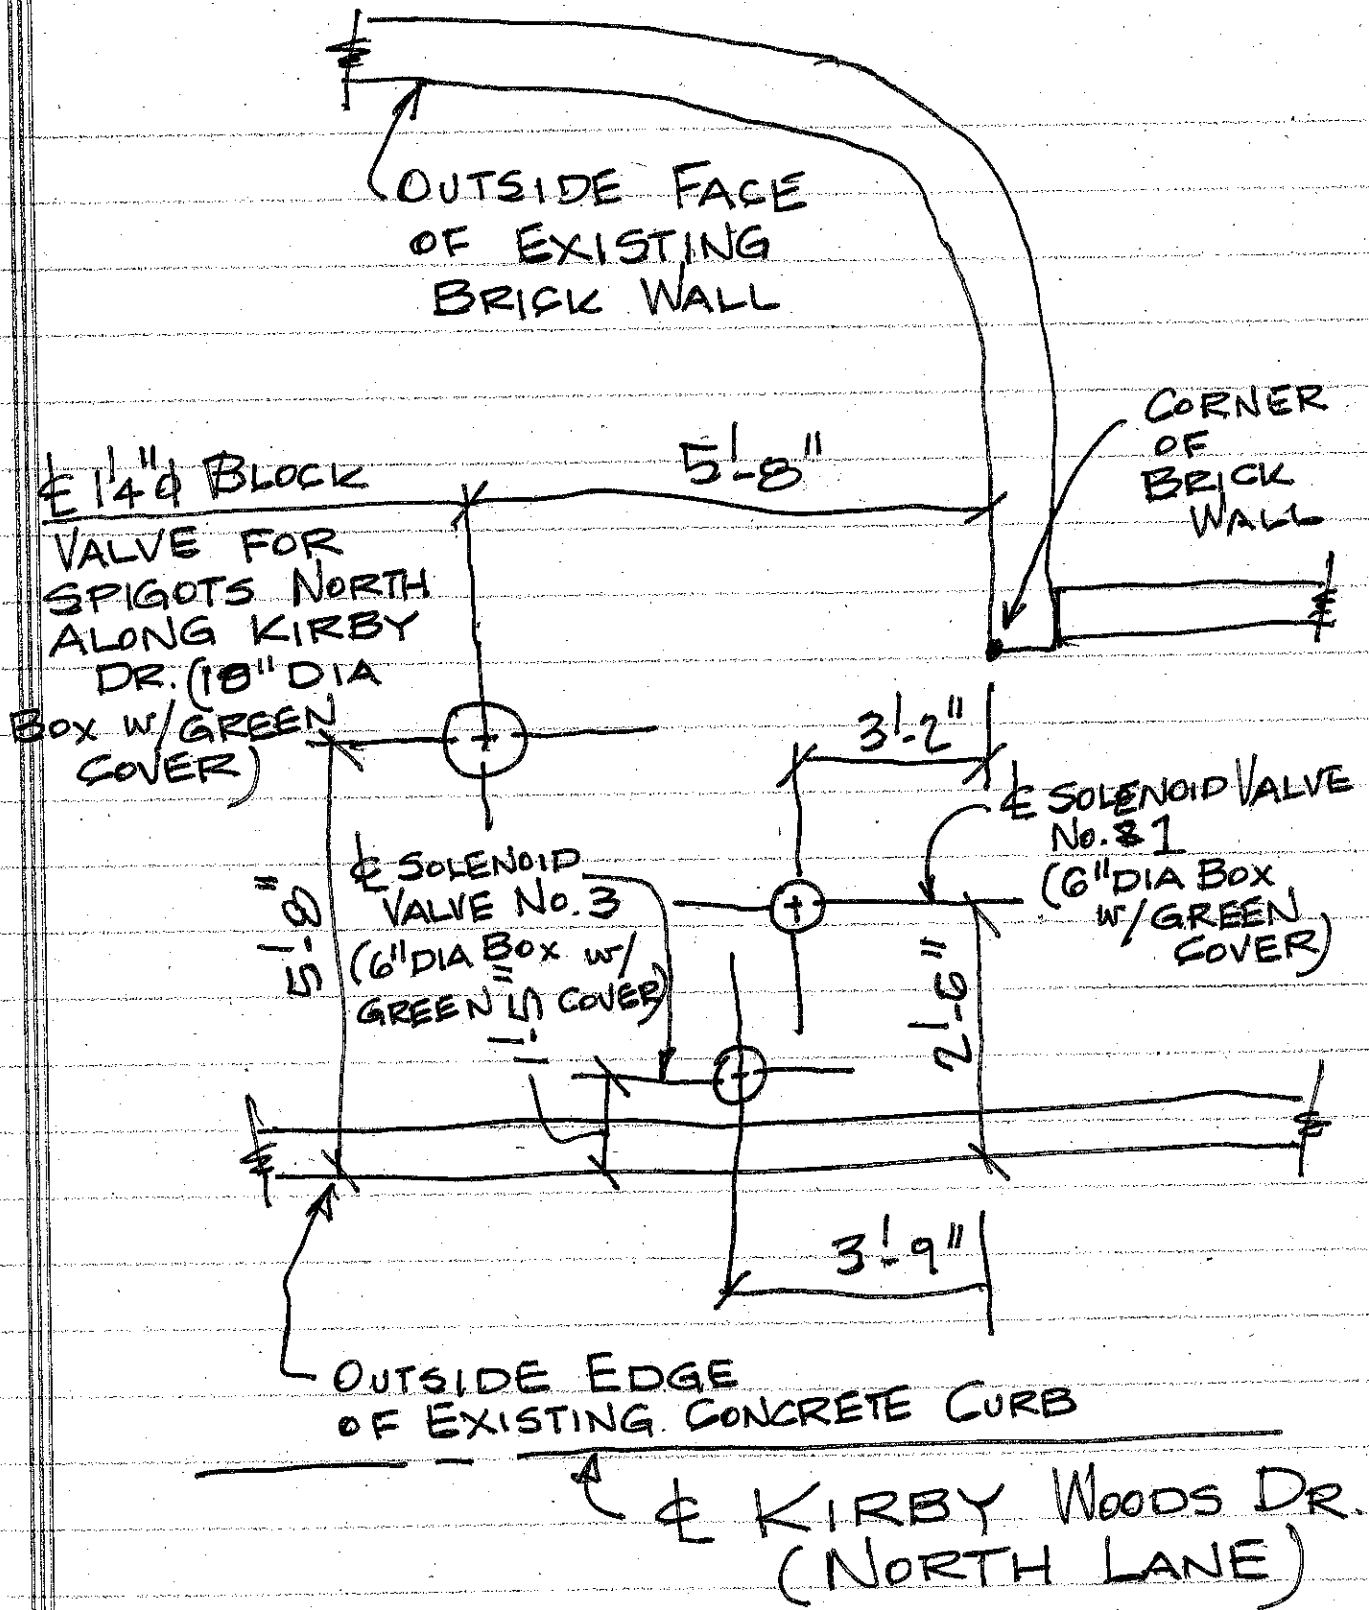 OUTSIDE FACE
OF EXISTING
BRICK WALL
CORNER
OF
BRICK
WALL
5'-8"
℄ 1¼"ϕ BLOCK
VALVE FOR
SPIGOTS NORTH
ALONG KIRBY
DR. (18" DIA
BOX W/GREEN
COVER)
3'-2"
℄ SOLENOID VALVE
No. 1
(6" DIA BOX
W/GREEN
COVER)
℄ SOLENOID
VALVE No. 3
(6" DIA BOX W/
GREEN COVER)
5'-8"
1'-5"
2'-6"
3'-9"
OUTSIDE EDGE
OF EXISTING CONCRETE CURB
℄ KIRBY WOODS DR.
(NORTH LANE)